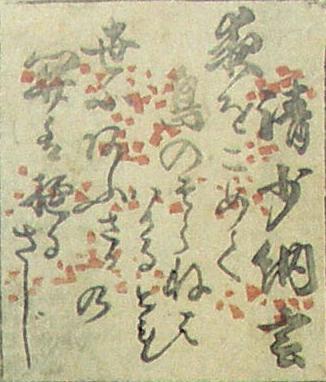 清少納言
夜をこめて
鳥のそらねハ
はかるとも
世にあふさか乃
関はゆるさし